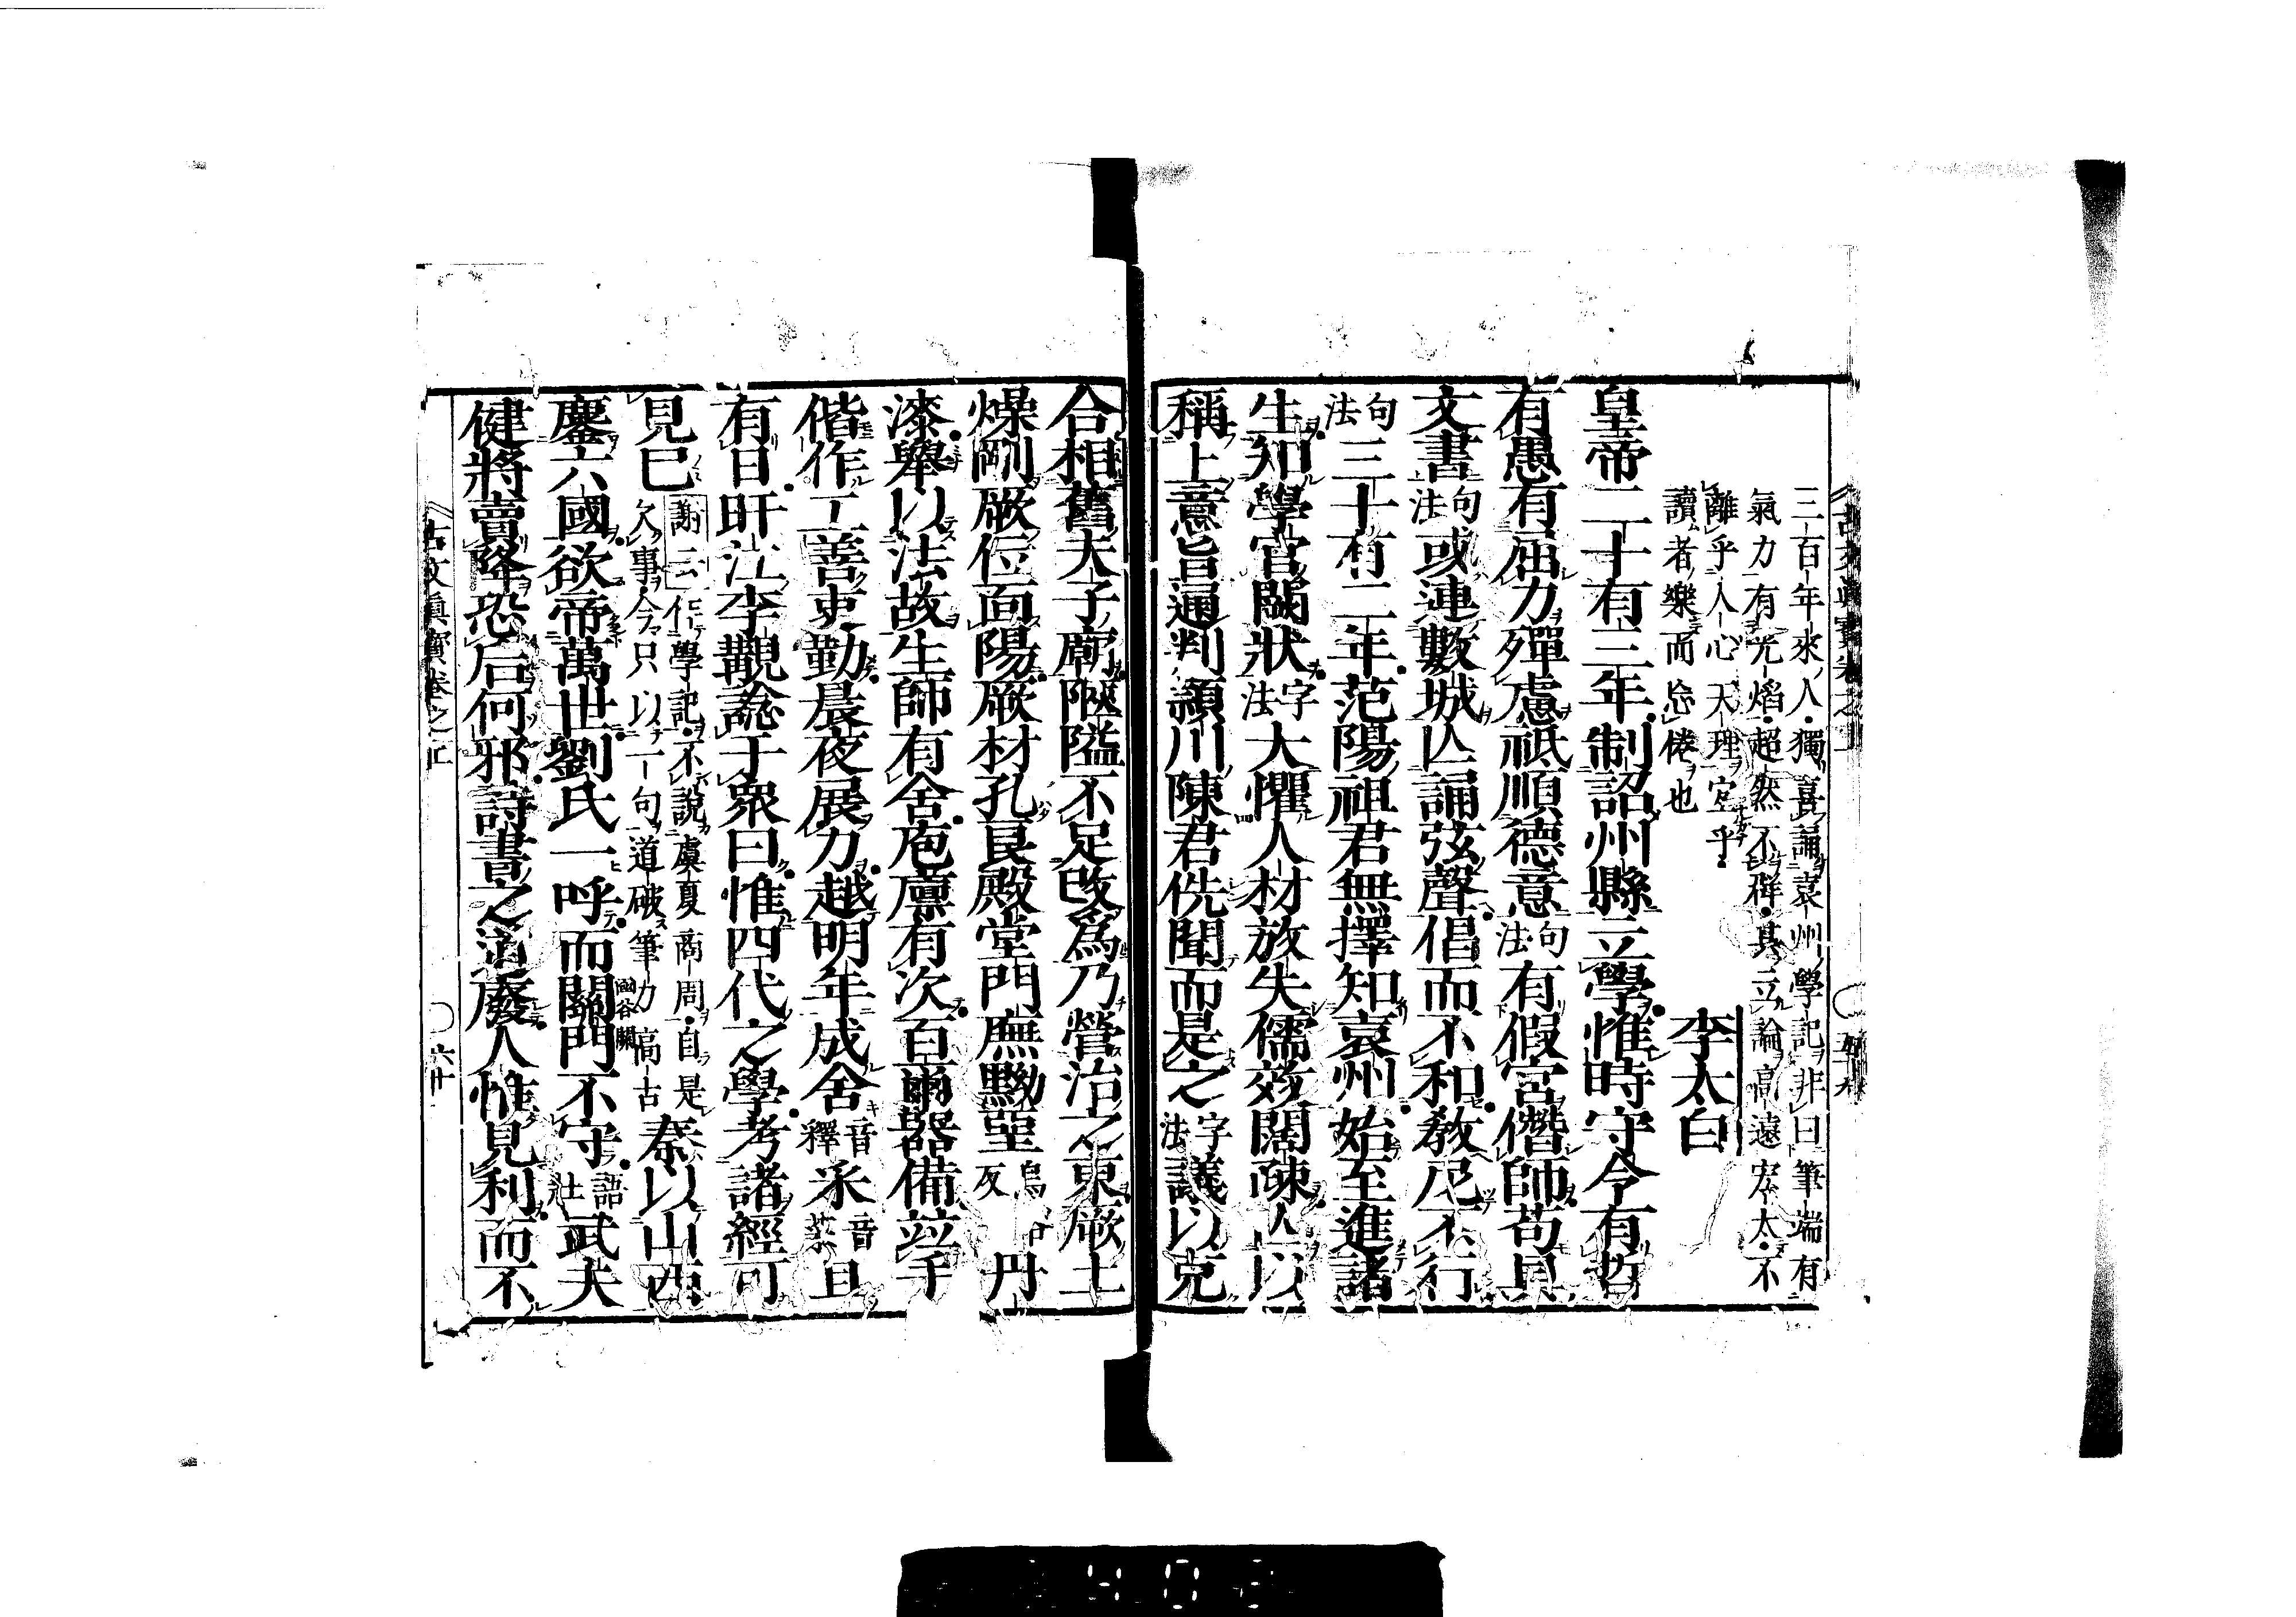 三百年來人獨喜誦袁州學記非曰筆端有
氣力有光熖超然不羣其立論高遠宏大不
離乎人心天理宜乎
讀者樂而忘倦也
李太白
皇帝二十有三年制詔州縣立學惟時守令有哲
有愚有屈力殫慮祗順德意句法有假宮僭師苟具
文書句法或連數城亡誦弦聲倡而不和教尼不行
句法三十有二年范陽祖君無擇知袁州始至進諸
生知學宮闕狀字法大懼人材放失儒效闊疎亡以
稱上意旨通判潁川陳君侁聞而是之字法議以克
合相舊夫子廟陿隘不足改爲乃營治之東厥土
燥剛厥位面陽厥材孔良殿堂門廡黝堊烏谷反丹
漆舉以法故生師有舍庖廩有次百爾器備竝手
偕作工善吏勤晨夜展力越明年成舍音釋釆音菜且
有日旴江李觀諗于衆曰惟四代之學考諸經可
見已謝云作學記不說虞夏商周自是欠事今只以一句道破筆力高古秦以山西
鏖六國欲帝萬世劉氏一呼而關函谷關門不守語壯武夫
健將賣降恐后何邪詩書之道廢人惟見利而不
古文眞寳卷之下
六十